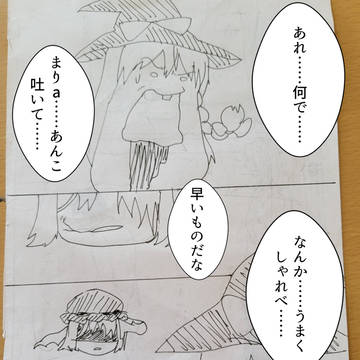 あれ……何で……
まりa……あんこ
吐いて……
早いものだな
なんか……うまく
しゃれべ……